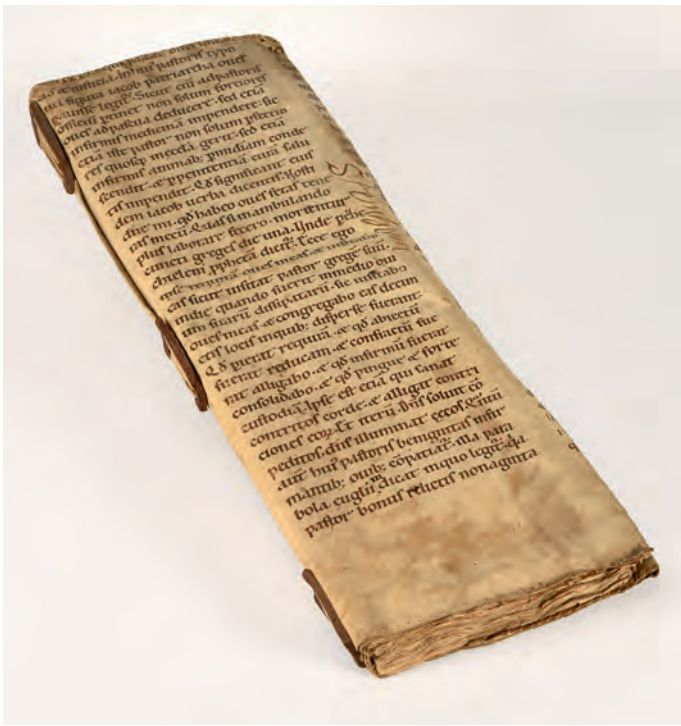 ao & iusticia. In hui pastoris typo
figura iacob patriarcha oues
pauisse legit. Sicut eni ad pastoris
officiu ptinet non solum fortiores
oues ad pascua deducere. sed etia
infirmis medicina impendere. sic
etia iste pastor non solum pfectio
res quosq; in ecclia gerit. sed etia
infirmis animab; p indiam conde
scendit. & p penitentia cura salu
tis impendit. Qd significant eius
dem iacob uerba dicentis. Nosti
dne mi. qd habeo oues fetas tene
ras mecu. Quas si in ambulando
plus laborare fecero. morientur
cuncti greges die una. Unde p hie
chielem ppheta dicit. Ecce ego
ipse requira oues meas. &
eas sicut uisitat pastor grege suu.
in die quando fuerit in medio oui
um suaru dissipataru. sic uisitabo
oues meas. & congregabo eas de cun
ctis locis in quib; disperse fuerant.
Qd pierat requira. & qd abiectu
fuerat reducam. & confractu fue
rat alligabo. & qd infirmu fuerat
consolidabo. & qd pingue & forte
custodia. Ipse est etia qui sanat
contritos corde. & alligat contri
ciones eoru. Et iteru. Dns soluit co
peditos. dns illuminat cecos. Quantu
aut hui pastoris benignitas infir
mantib; ouib; copatiat. illa para
bola euglii dicat. in quo legit. qa
pastor bonus relictis nonaginta